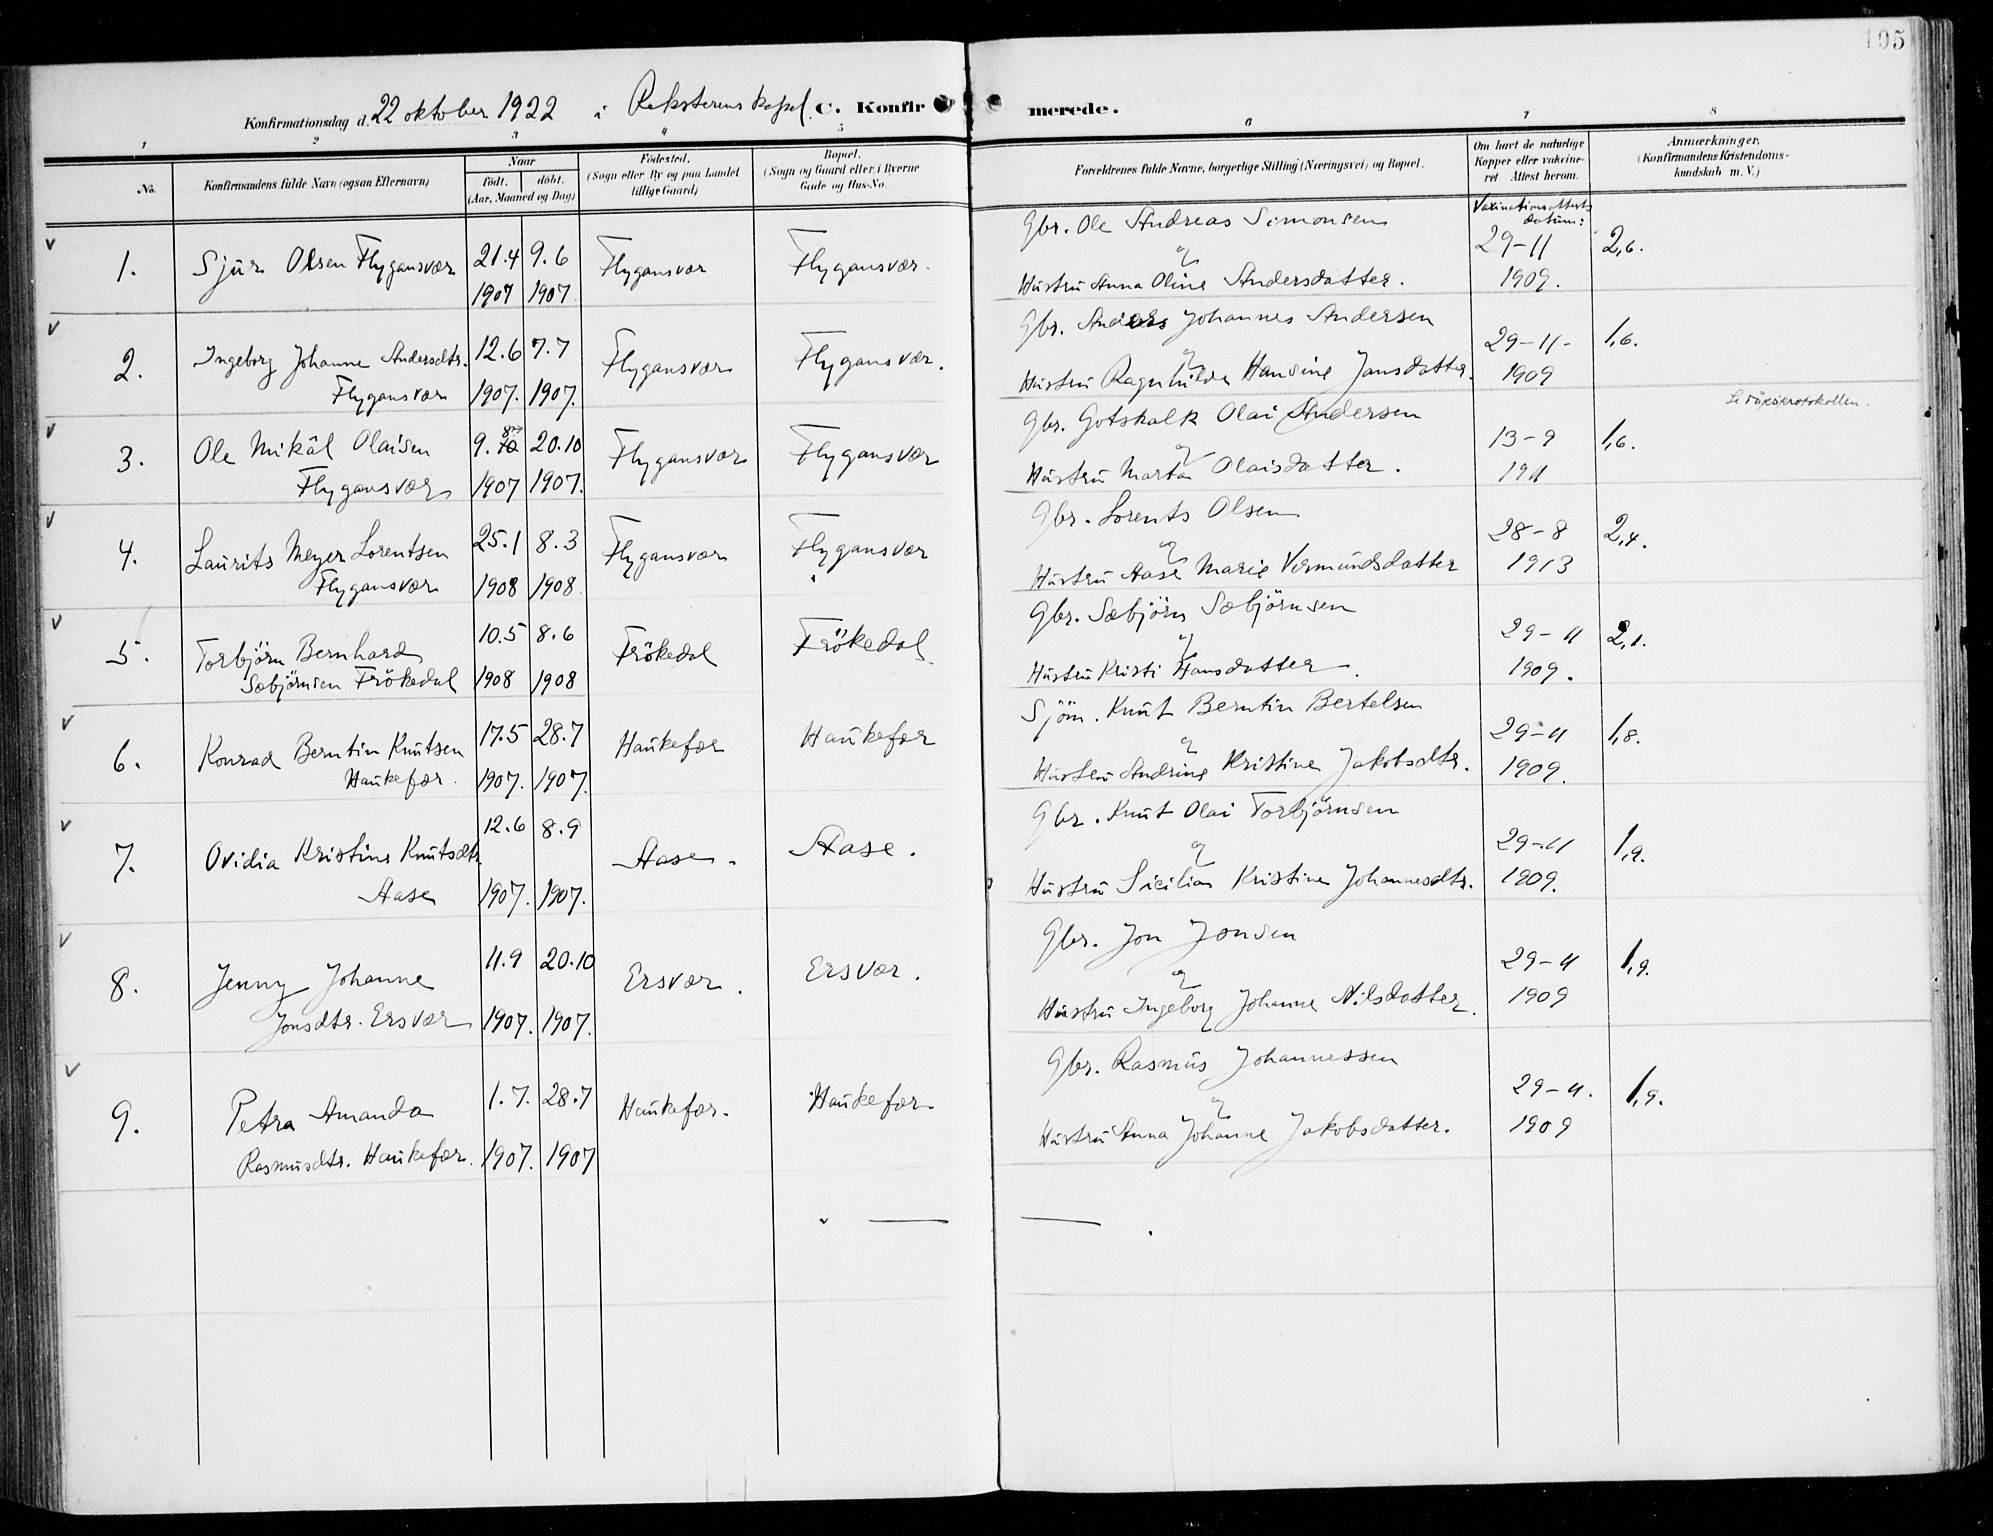 105
Konfirmationsdag d. 22 oktober 1922 i Reksterens kapel. C. Konfirmerede.
1 2 3 4 5 6 7 8
No. Konfirmandens fulde Navn (ogsaa Efternavn) Naar födt. döbt. (Aar, Maaned og Dag) Födested. (Sogn eller By og paa Landet tillige Gaard) Bopæl. (Sogn og Gaard eller i Byerne Gade og Hus-No. Forældrenes fulde Navne, borgerlige Stilling (Næringsvei) og Bopæl. Om havt de naturlige Kopper eller vakcineret Attest herom. Anmærkninger. (Konfirmandens Kristendomskundskab m. V.)
Vaxinationsattests datum:
1. Sjur Olsen Flygansvær 21.4 9.6 Flygansvær Flygansvær. Gbr. Ole Andreas Simonsen 29-11 2,6.
1907 1907 og Hustru Anna Oline Andersdatter. 1909.
2. Ingeborg Johanne Andersdtr. 12.6 7.7 Flygansvær Flygansvær. Gbr. Anders Johannes Andersen 29-11- 1,6.
Flygansvær 1907. 1907. og Hustru Ragnhilda Hansine Jansdatter. 1909
Se dåpsprotokollen.
3. Ole Mikâl Olaisen 9. 8 10 20.10 Flygansvær Flygansvær Gbr. Gotskalk Olai Andersen 13-9 1,6.
Flygansvær 1907 1907. og Hustru Marta Olaisdatter. 1911
4. Laurits Meyer Lorentsen 25.1 8.3 Flygansvær Flygansvær Gbr. Lorents Olsen 28-8 2,4.
Flygansvær 1908 1908. og Hustru Aase Marie Vermundsdatter 1913
5. Torbjörn Bernhard 10.5 8.6 Frökedal Frökedal. Gbr. Sæbjörn Sæbjörnsen 29-11 2,1.
Sæbjörnsen Frökedal 1908 1908 og Hustru Kristi Hansdatter. 1909.
6. Konrad Berntin Knutsen 17.5 28.7 Haukefær Haukefær Sjöm. Knut Berntin Bertelsen 29-11 1,8.
Haukefær. 1907. 1907. og Hustru Andrine Kristine Jakobsdtr. 1909.
7. Ovidia Kristine Knutsdtr 12.6 8.9 Aase. Aase. Gbr. Knut Olai Torbjörnsen 29-11 1,9.
Aase 1907. 1907. og Hustru Sicilia Kristine Johannesdtr. 1909.
8. Jenny Johanne 11.9 20.10 Ersvær. Ersvær. Gbr. Jon Jonsen 29-11 1,9.
Jonsdtr. Ersvær 1907. 1907. og Hustru Ingeborg Johanne Nilsdatter. 1909
9. Petra Amanda 1.7. 28.7 Haukefær. Haukefær Gbr. Rasmus Johannessen 29-11. 1,9.
Rasmusdtr. Haukefær. 1907. 1907 og Hustru Anna Johanne Jakobsdatter. 1909